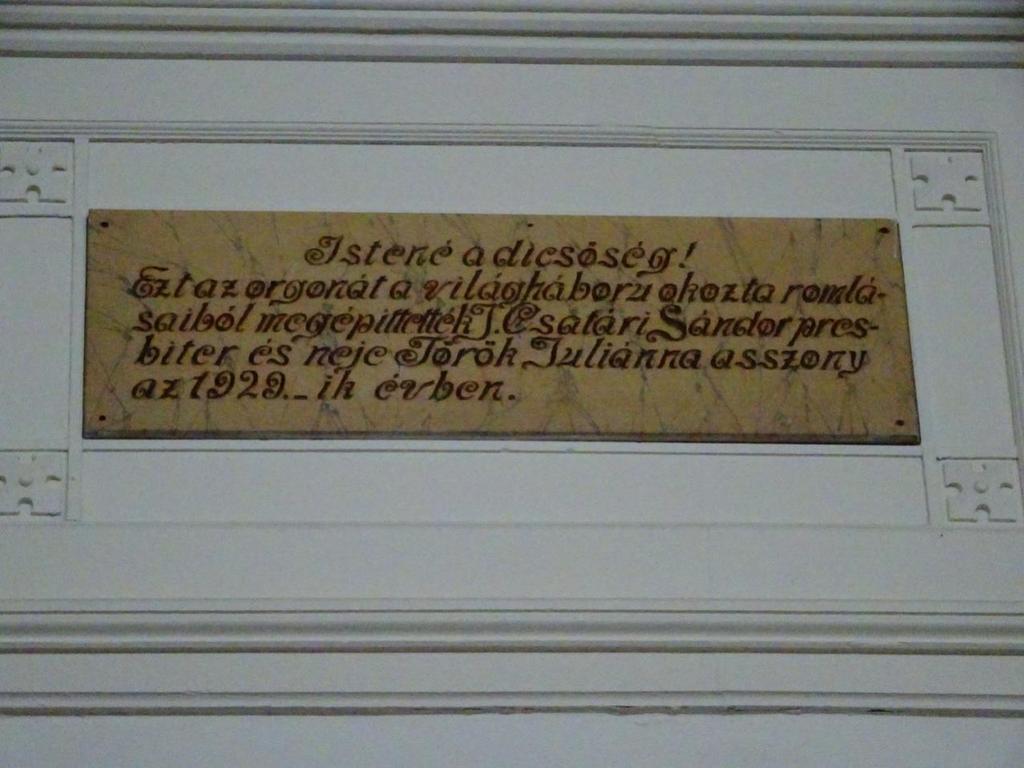 Istené a dicsőség!
Ezt az orgonát a világháború okozta romlá-
saiból megépíttették J. Csatári Sándor pres-
biter és neje Török Juliánna asszony
az 1929.-ik évben.